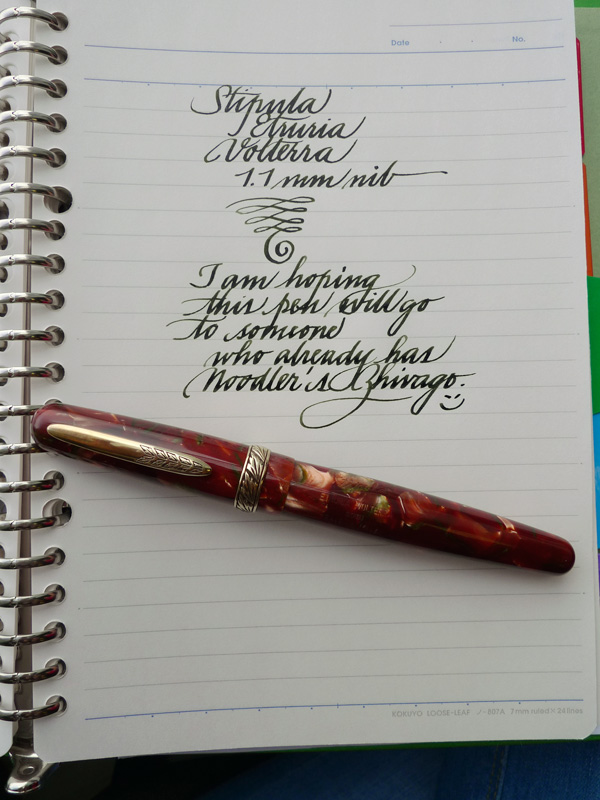 Date . . No.
Stipula
Etruria
Volterra
1.1 mm nib
I am hoping
this pen will go
to someone
who already has
Noodler's Zhivago. :)
KOKUYO LOOSE-LEAF ノ-807A 7mm ruled×24lines